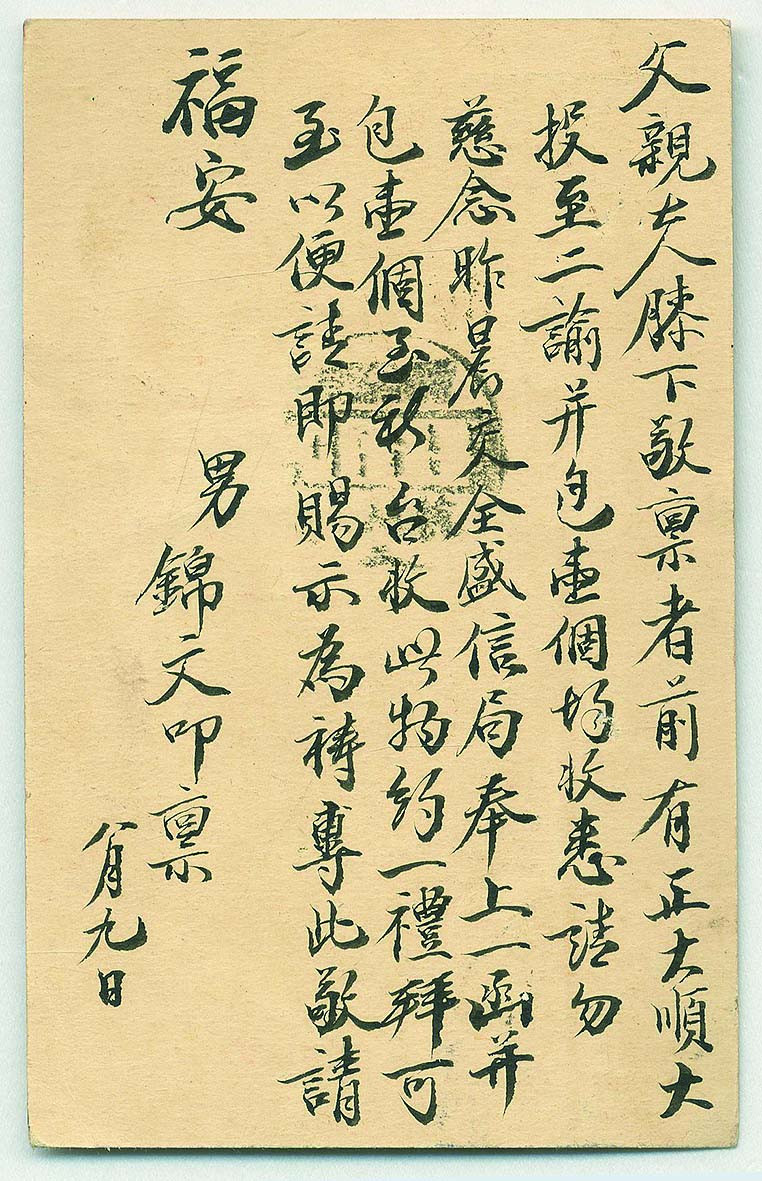 父親大人膝下敬稟者前有正大順大
投至二諭并包壹個均收悉請勿
慈念昨晨交全盛信局奉上一函并
包壹個至秋台收此物約一禮拜可
至以便請即賜示為禱專此敬請
福安
男錦文叩稟
八月九日